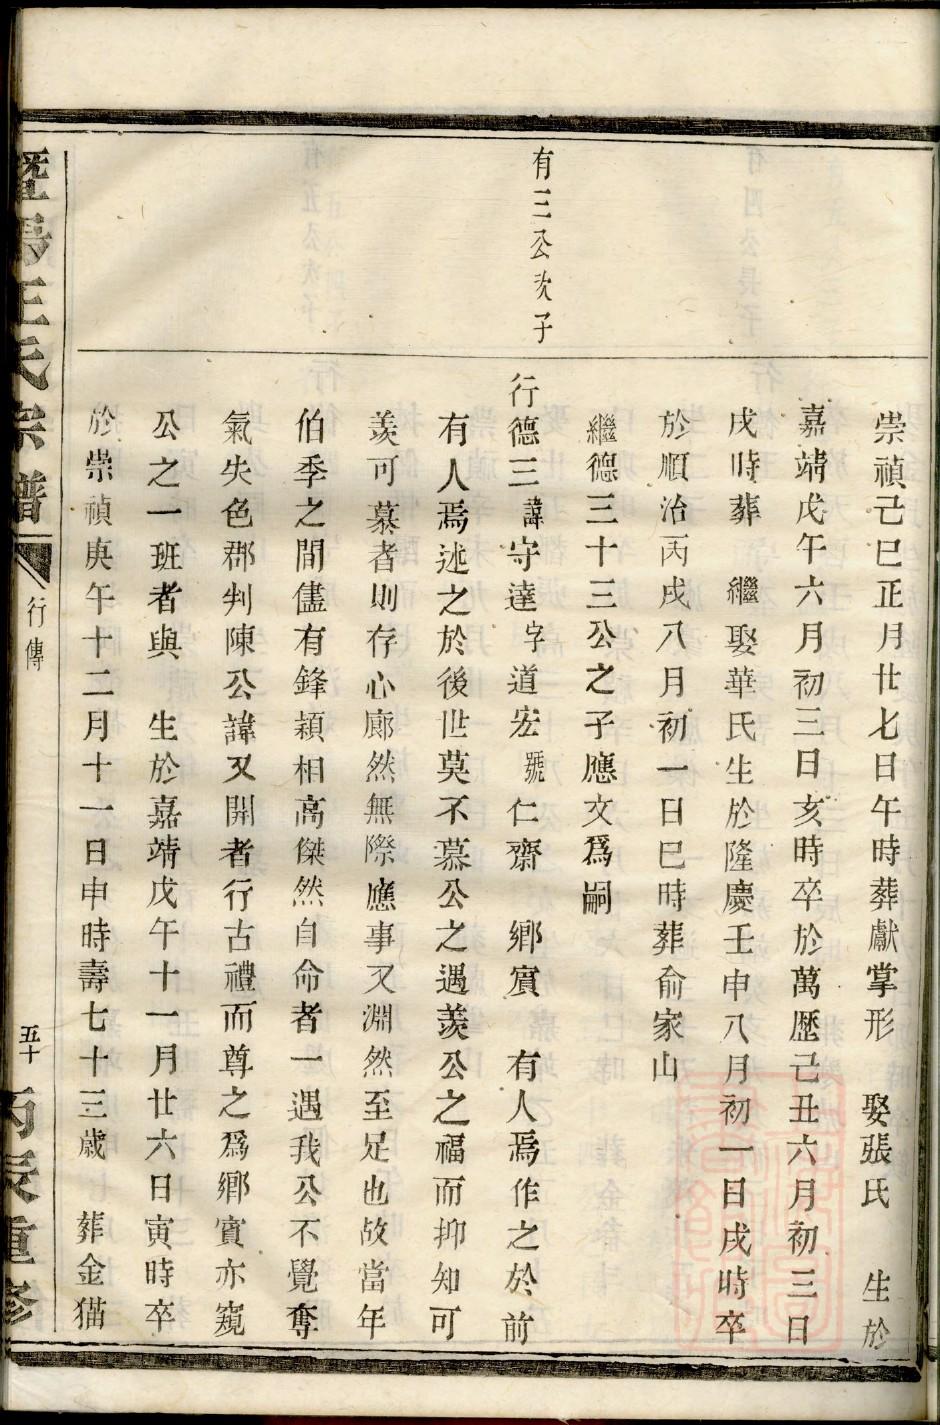 崇禎己巳正月廿七日午時葬獻掌形　娶張氏　生於
嘉靖戊午六月初三日亥時卒於萬歷己丑六月初三日
戌時葬　繼娶華氏生於隆慶壬申八月初一日戌時卒
於順治丙戌八月初一日巳時葬俞家山
繼德三十三公之子應文爲嗣
有三公次子
行德三諱守達字道宏號仁齋　鄉賓　有人焉作之於前
有人焉述之於後世莫不慕公之遇羨公之福而抑知可
羨可慕者則存心廓然無際應事又淵然至足也故當年
伯季之間儘有鋒穎相高傑然自命者一遇我公不覺奪
氣失色郡判陳公諱又開者行古禮而尊之爲鄉賓亦窺
公之一班者與　生於嘉靖戊午十一月廿六日寅時卒
於崇禎庚午十二月十一日申時壽七十三歲　葬金猫
暨陽王氏宗譜
行傳
五十
丙辰重修